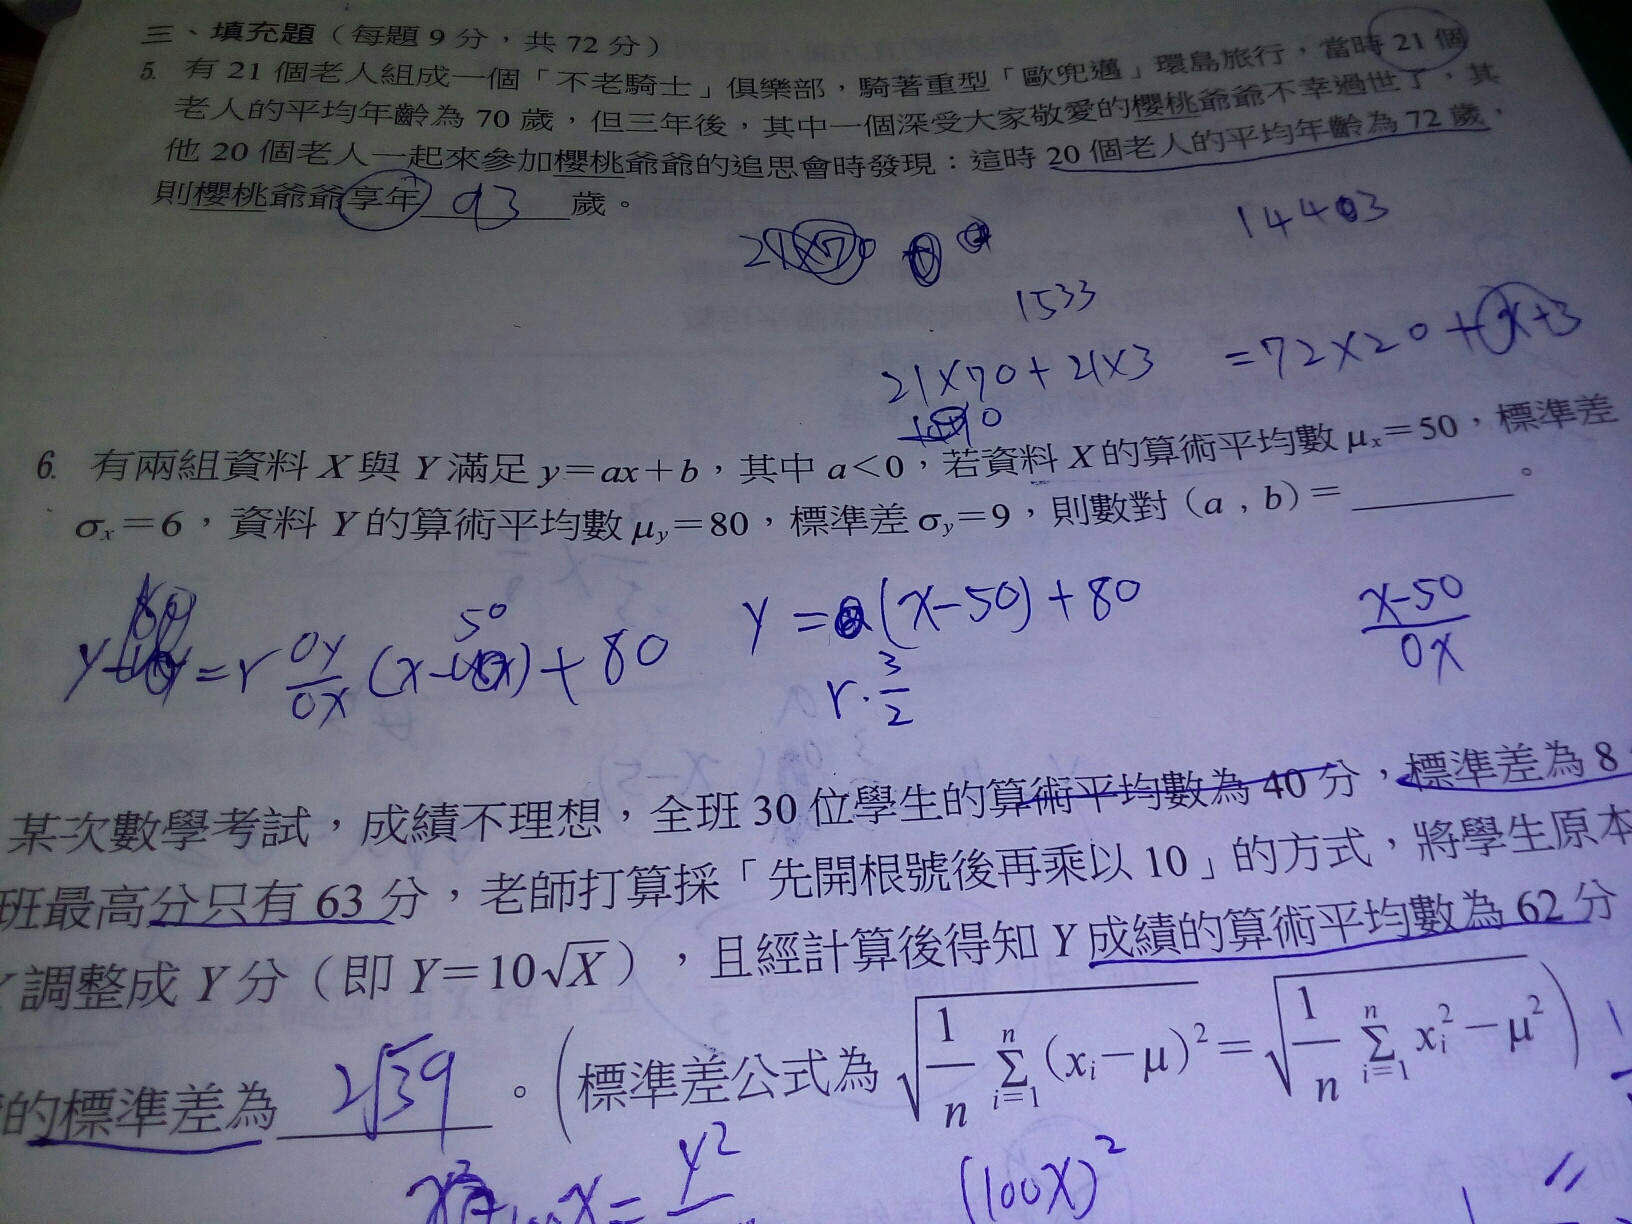 三、填充題（每題9分，共72分）
5. 有21個老人組成一個「不老騎士」俱樂部，騎著重型「歐兜邁」環島旅行，當時21個
老人的平均年齡為70歲，但三年後，其中一個深受大家敬愛的櫻桃爺爺不幸過世了，其
他20個老人一起來參加櫻桃爺爺的追思會時發現：這時20個老人的平均年齡為72歲，
則櫻桃爺爺享年 93 歲。
14403
21×70
1533
21×70+21×3 =72×20+x+3
6. 有兩組資料X與Y滿足y=ax+b，其中a<0，若資料X的算術平均數μx=50，標準差
σx=6，資料Y的算術平均數μy=80，標準差σy=9，則數對（a，b）=______。
50
y =r σy/σx (x- )+80
y = a(x-50)+80
r·3/2
x-50/σx
某次數學考試，成績不理想，全班30位學生的算術平均數為40分，標準差為8
班最高分只有63分，老師打算採「先開根號後再乘以10」的方式，將學生原本
調整成Y分（即Y=10√X），且經計算後得知Y成績的算術平均數為62分
的標準差為 2√39 。（標準差公式為 √(1/n Σ_{i=1}^{n} (x_i-μ)²) = √(1/n Σ_{i=1}^{n} x_i²-μ²)）
x= y²
(100x)²